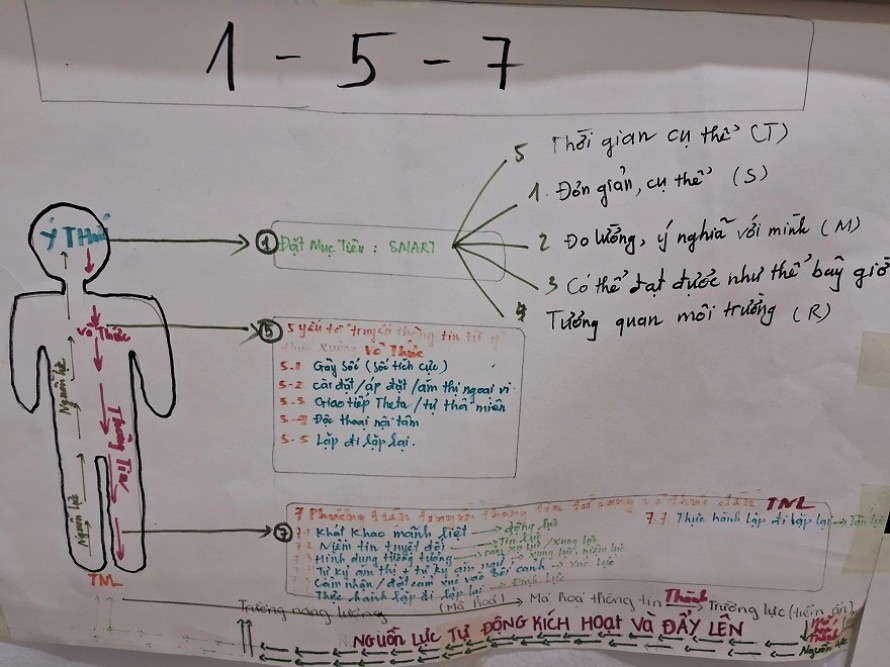 1 - 5 - 7
5 Thời gian cụ thể (T)
1. Đơn giản, cụ thể (S)
2 Đo lường, ý nghĩa với mình (M)
3 Có thể đạt được như thể bây giờ
4 Tương quan môi trường (R)
Ý Thức
① Đặt Mục Tiêu : SMART
Vô Thức
⑤ 5 yếu tố truyền thông tin từ ý
thức xuống Vô Thức
5-1 Gây sốc (sốc tích cực)
5-2 cài đặt/áp đặt/ám thị ngoại vi
5-3 Giao tiếp Theta/tự thôi miên
5-4 Độc thoại nội tâm
5-5 Lặp đi lặp lại.
Nguồn lực
Thông Tin
Nguồn lực
⑦ 7 Phương tiện thông tin từ vô thức TNL
7.1 Khát Khao mãnh liệt → động lực
7.7 Thực hành lặp đi lặp lại →
7.2 Niềm tin tuyệt đối → Tín lực/xung lực
7.3 Hình dung tưởng tượng → xung lực, niệm lực
Tự kỷ ám thị + tự kỷ ám ngữ →
Cảm nhận/đặt cảm xúc vào bối cảnh →
Thực hành lặp đi lặp lại → Định lực
TNL
Trường năng lượng (Mã hoá) → Mã hoá thông tin Thành → Trường lực (tiềm ẩn)
Thành
Nguồn lực
NGUỒN LỰC TỰ ĐỘNG KÍCH HOẠT VÀ ĐẨY LÊN